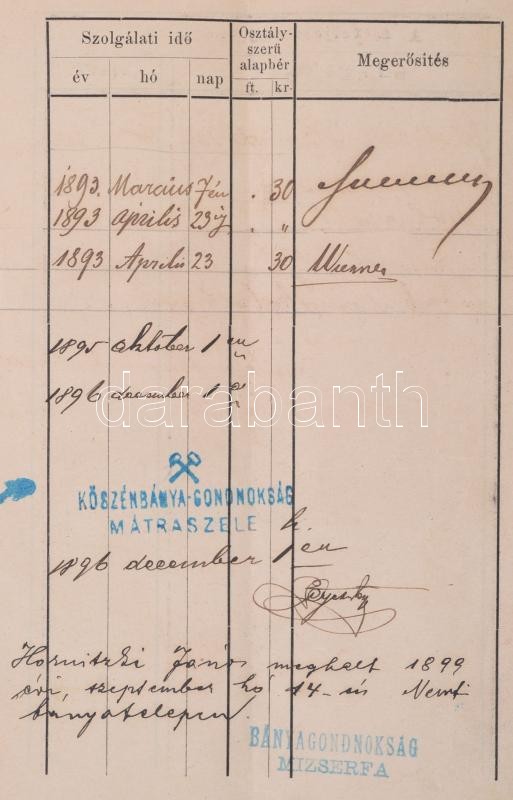 Szolgálati idő Osztály-szerű alapbér Megerősités
év hó nap ft. kr.
1893. Marczius 7én . 30
1893 április 23ig . „
1893 Április 23 30 Wiesner
1895 oktober 1 én
1896 december 1
darabanth
KŐSZÉNBÁNYA-GONDNOKSÁG
MÁTRASZELE
1896 december 1 én
Hornitzki János meghalt 1899
évi szeptember hó 14-én Nemti
bányatelepen.
BÁNYAGONDNOKSÁG
MIZSERFA